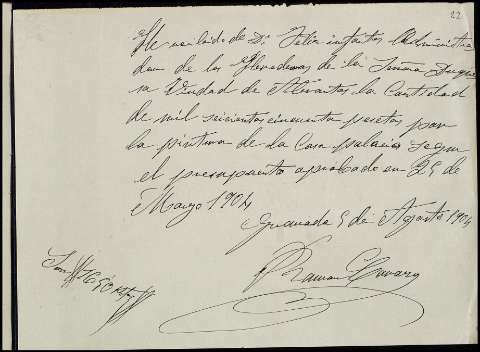 22
He recibido de Dn. Felix infantes Administra
dor de los Herederos de la Señora Duque
sa Viuda de Abrantes la Cantidad
de mil seicientas cincuenta pesetas por
la pintura de la Casa palacio segun
el presupuesto aprobado en 25 de
Mayo 1904
Granada 5 de Agosto 1904
Son 1650 ptas
Ramon